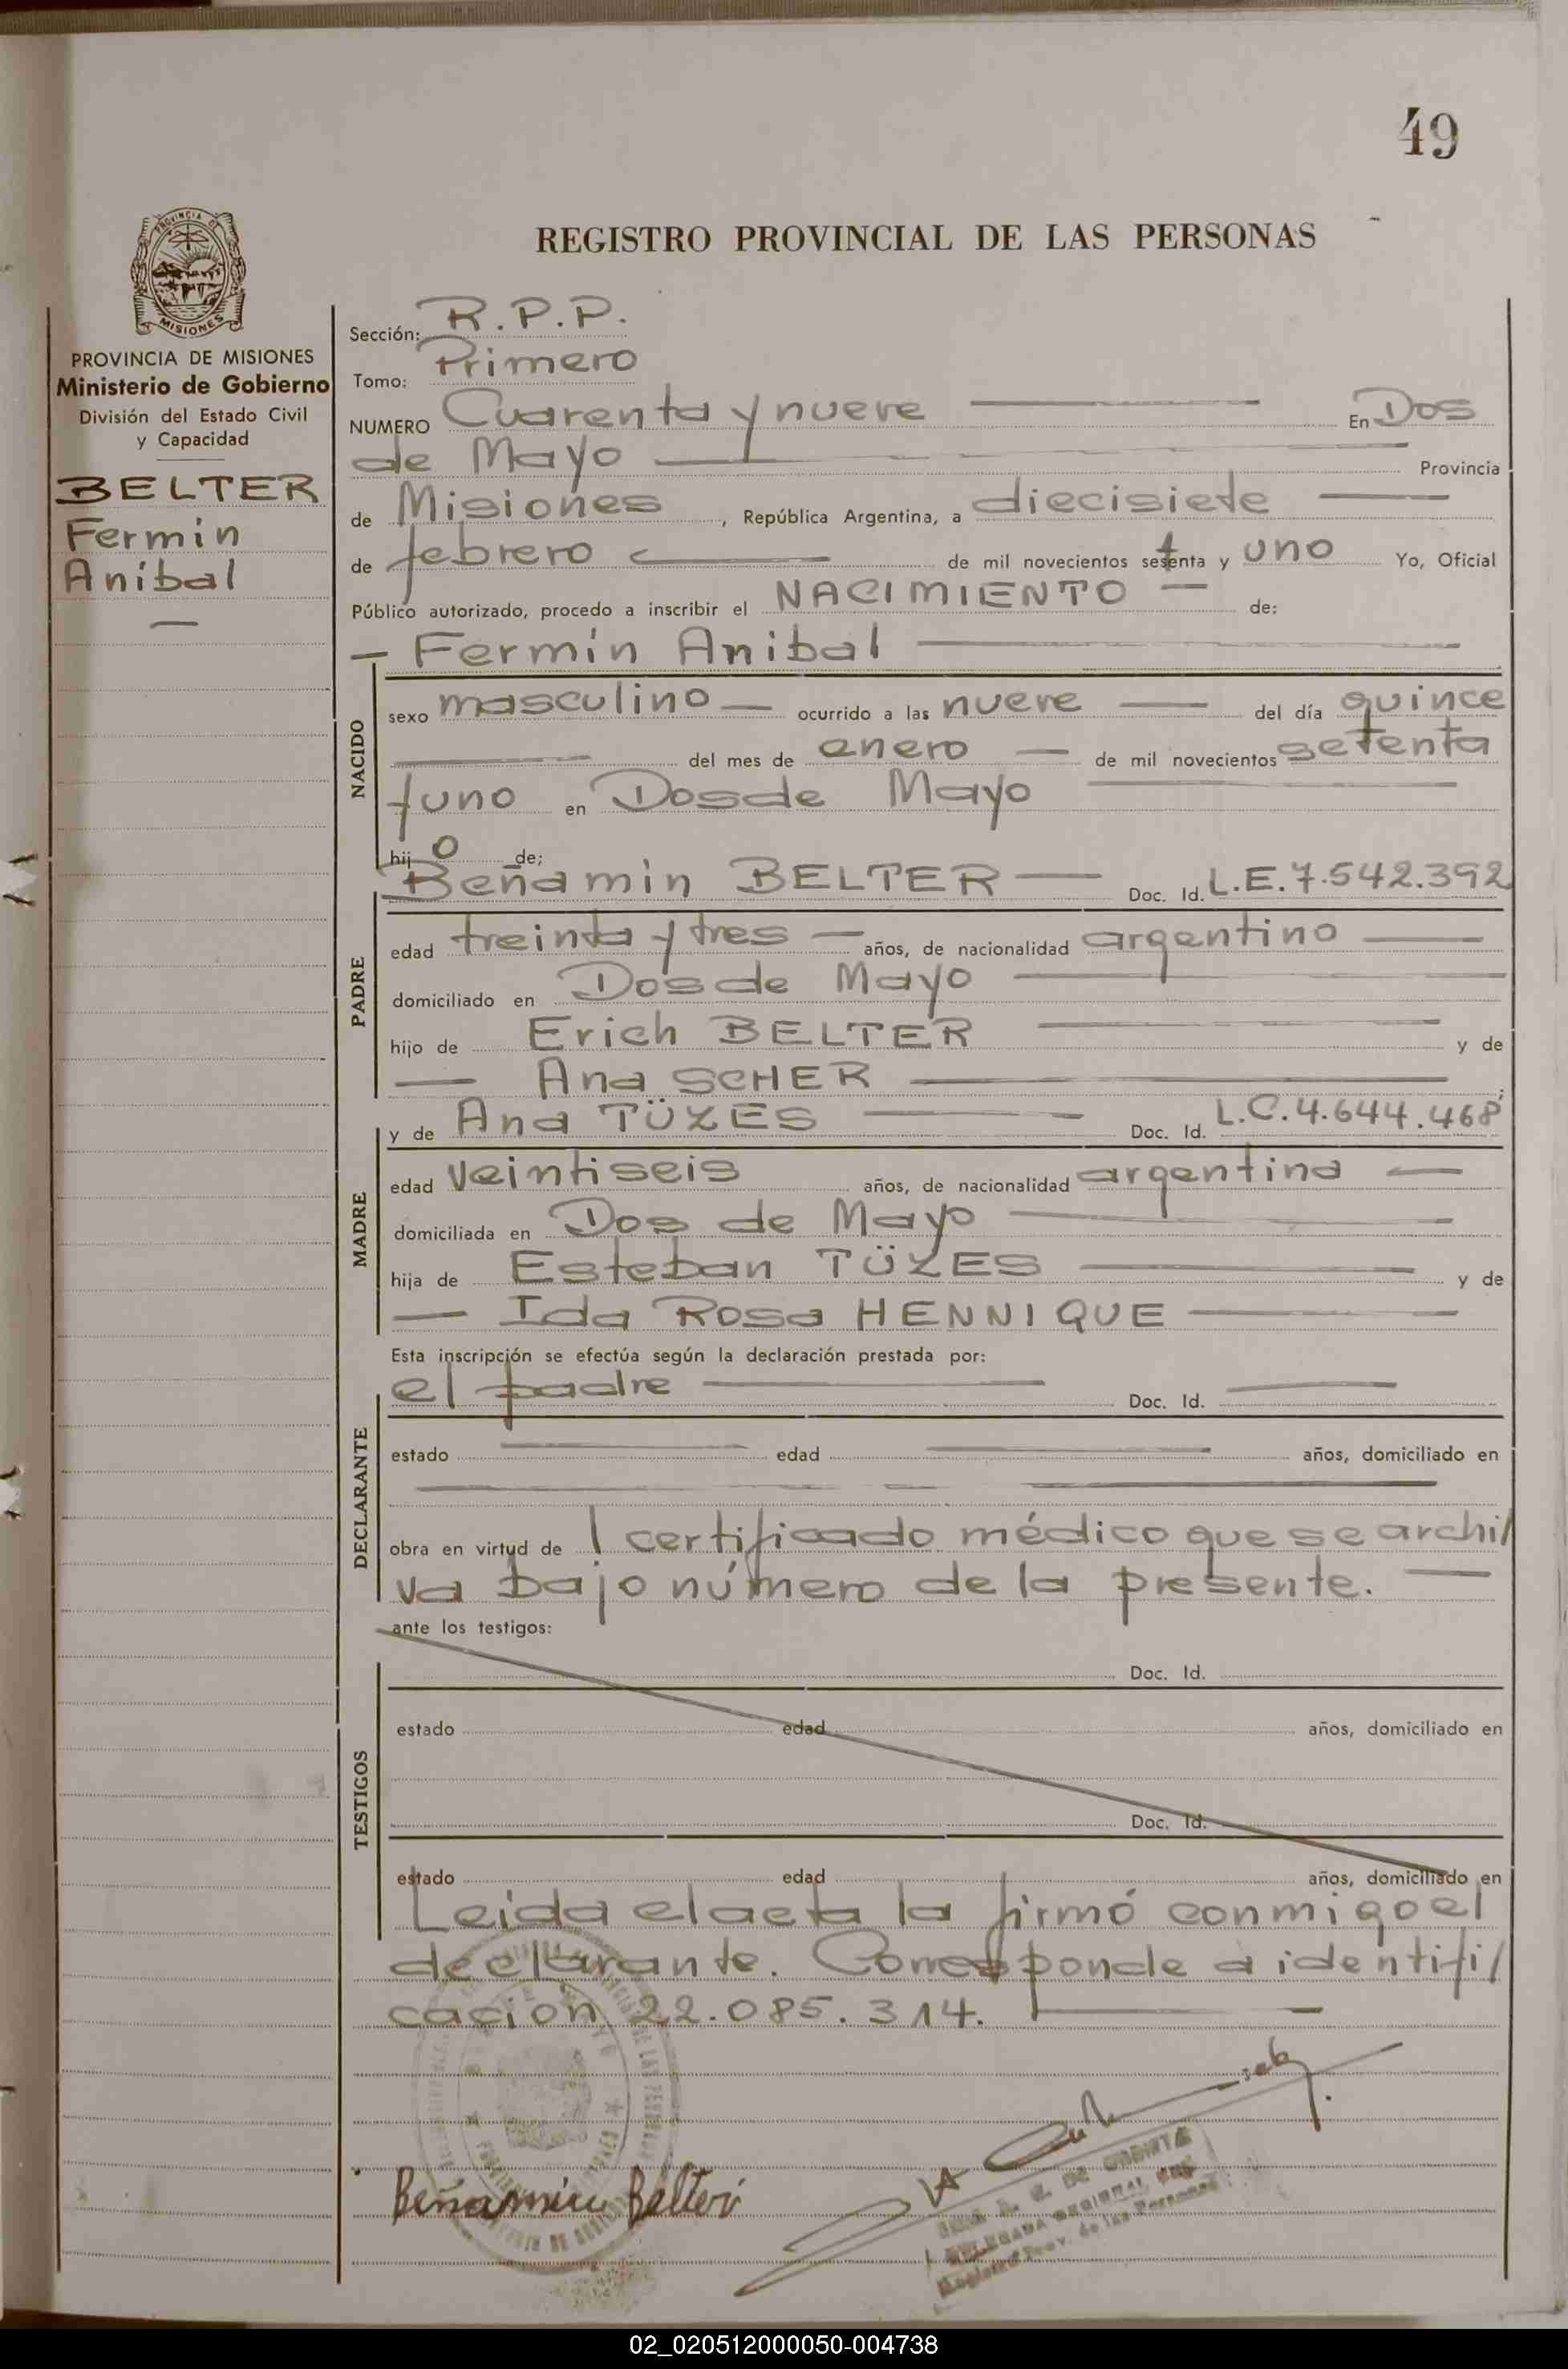 49
REGISTRO PROVINCIAL DE LAS PERSONAS
PROVINCIA DE
MISIONES
PROVINCIA DE MISIONES
Ministerio de Gobierno
División del Estado Civil
y Capacidad
BELTER
Fermín
Anibal
Sección: R.P.P.
Tomo: Primero
NUMERO Cuarenta y nueve En Dos
de Mayo Provincia
de Misiones, República Argentina, a diecisiete
de febrero de mil novecientos setenta y uno Yo, Oficial
Público autorizado, procedo a inscribir el NACIMIENTO de:
Fermín Anibal
NACIDO
sexo masculino ocurrido a las nueve del día quince
del mes de enero de mil novecientos setenta
y uno en Dos de Mayo
hijo de:
Beñamin BELTER Doc. Id. L.E.7.542.392
PADRE
edad treinta y tres años, de nacionalidad argentino
domiciliado en Dos de Mayo
hijo de Erich BELTER y de
Ana SCHER
y de Ana TÜZES Doc. Id. L.C.4.644.468
MADRE
edad veintiseis años, de nacionalidad argentina
domiciliada en Dos de Mayo
hija de Esteban TÜZES y de
Ida Rosa HENNIQUE
Esta inscripción se efectúa según la declaración prestada por:
el padre Doc. Id.
DECLARANTE
estado edad años, domiciliado en
obra en virtud de 1 certificado médico que se archi/
va bajo número de la presente.
ante los testigos:
Doc. Id.
TESTIGOS
estado edad años, domiciliado en
Doc. Id.
estado edad años, domiciliado en
Leida el acta la firmó conmigo el
declarante. Corresponde a identifi/
cación 22.085.314.
Beñamin Belter
02_020512000050-004738